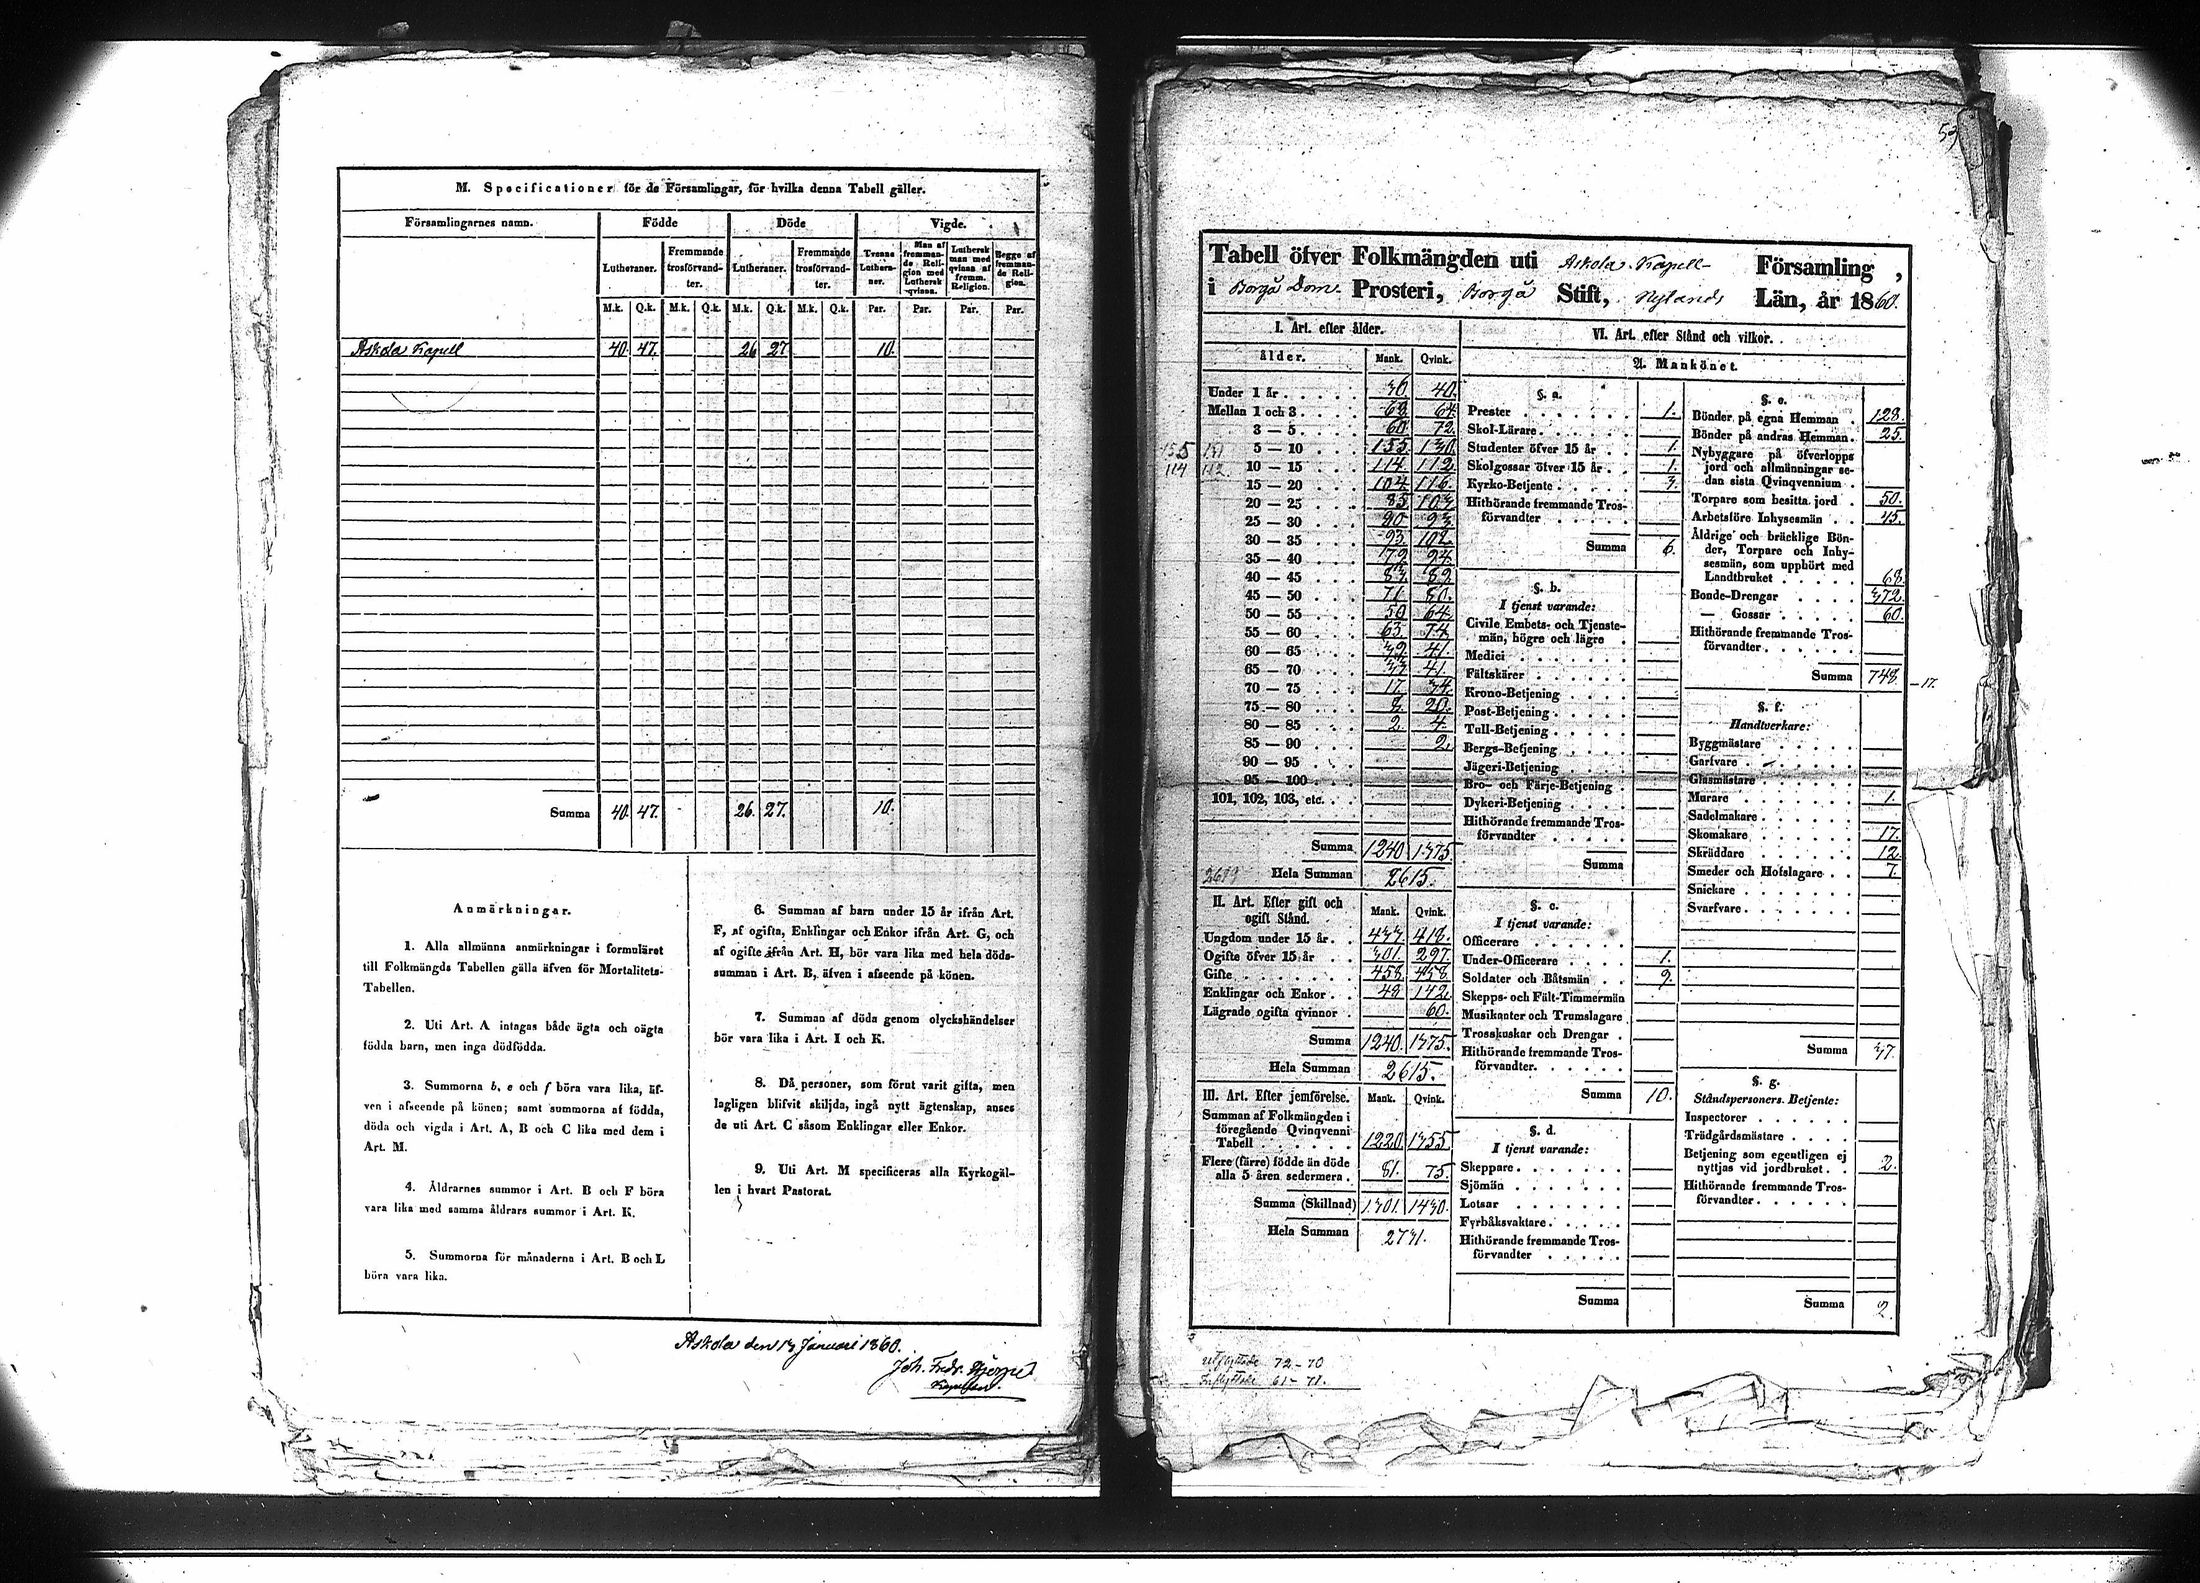 M. Specificationer för de Församlingar, för hvilka denna Tabell gäller.
Församlingarnes namn. Födde Döde Vigde.
Lutheraner. Fremmande trosförvandter. Lutheraner. Fremmande trosförvandter. Tvenne Lutheraner. Man af fremmande Religion med Luthersk qvinna. Luthersk man med qvinna af fremm. Religion. Begge af fremmande Religion.
M.k. Q.k. M.k. Q.k. M.k. Q.k. M.k. Q.k. Par. Par. Par. Par.
Askola Kapell 40. 47. 26 27 10.
Summa 40. 47. 26. 27. 10.
Anmärkningar.
1. Alla allmänna anmärkningar i formuläret
till Folkmängds Tabellen gälla äfven för Mortalitets-
Tabellen.
2. Uti Art. A intagas både ägta och oägta
födda barn, men inga dödfödda.
3. Summorna b, e och f böra vara lika, äf-
ven i afseende på könen; samt summorna af födda,
döda och vigda i Art. A, B och C lika med dem i
Art. M.
4. Åldrarnes summor i Art. B och F böra
vara lika med samma åldrars summor i Art. K.
5. Summorna för månaderna i Art. B och L
böra vara lika.
6. Summan af barn under 15 år ifrån Art.
F, af ogifta, Enklingar och Enkor ifrån Art. G, och
af ogifte ifrån Art. H, bör vara lika med hela döds-
summan i Art. B, äfven i afseende på könen.
7. Summan af döda genom olyckshändelser
bör vara lika i Art. I och K.
8. Då personer, som förut varit gifta, men
lagligen blifvit skiljda, ingå nytt ägtenskap, anses
de uti Art. C såsom Enklingar eller Enkor.
9. Uti Art. M specificeras alla Kyrkogäl-
len i hvart Pastorat.
Askola den 13 Januari 1860.
Joh. Fredr.
Tabell öfver Folkmängden uti Askola Kapell- Församling,
i Borgå Dom. Prosteri, Borgå Stift, Nylands Län, år 1860.
I. Art. efter ålder.
ålder. Mank. Qvink.
Under 1 år 36. 40.
Mellan 1 och 3 68. 64.
3 — 5 60. 72.
155 131 5 — 10 155. 130.
114 112 10 — 15 114. 112.
15 — 20 104. 116.
20 — 25 85. 103.
25 — 30 90. 93.
30 — 35 93. 102.
35 — 40 79. 94.
40 — 45 83. 89.
45 — 50 71. 80.
50 — 55 50 64.
55 — 60 63. 74.
60 — 65 39. 41.
65 — 70 33. 41.
70 — 75 17. 34.
75 — 80 8. 20.
80 — 85 2. 4.
85 — 90 2.
90 — 95
95 — 100
101, 102, 103, etc.
Summa 1240 1375.
Hela Summan 2615.
II. Art. Efter gift och
ogift Stånd. Mank. Qvink.
Ungdom under 15 år 433. 418.
Ogifte öfver 15 år 301. 297.
Gifte 458. 458.
Enklingar och Enkor 48 142.
Lägrade ogifta qvinnor 60.
Summa 1240. 1375.
Hela Summan 2615.
III. Art. Efter jemförelse. Mank. Qvink.
Summan af Folkmängden i
föregående Qvinqvenni
Tabell 1220. 1355.
Flere (färre) födde än döde
alla 5 åren sedermera 81. 75.
Summa (Skillnad) 1301. 1430.
Hela Summan 2731.
VI. Art. efter Stånd och vilkor.
A. Mankönet.
§. a.
Prester 1.
Skol-Lärare
Studenter öfver 15 år 1.
Skolgossar öfver 15 år 1.
Kyrko-Betjente 3.
Hithörande fremmande Tros-
förvandter
Summa 6.
§. b.
I tjenst varande:
Civile Embets- och Tjenste-
män, högre och lägre
Medici
Fältskärer
Krono-Betjening
Post-Betjening
Tull-Betjening
Bergs-Betjening
Jägeri-Betjening
Bro- och Färje-Betjening
Dykeri-Betjening
Hithörande fremmande Tros-
förvandter
Summa
§. c.
I tjenst varande:
Officerare
Under-Officerare 1.
Soldater och Båtsmän 9.
Skepps- och Fält-Timmermän
Musikanter och Trumslagare
Trosskuskar och Drengar
Hithörande fremmande Tros-
förvandter.
Summa 10.
§. d.
I tjenst varande:
Skeppare
Sjömän
Lotsar
Fyrbåksvaktare
Hithörande fremmande Tros-
förvandter
Summa
§. e.
Bönder på egna Hemman 128.
Bönder på andras Hemman 25.
Nybyggare på öfverlopps
jord och allmänningar se-
dan sista Qvinqvennium
Torpare som besitta jord 50.
Arbetsföre Inhysesmän 45.
Åldrige och bräcklige Bön-
der, Torpare och Inhy-
sesmän, som upphört med
Landtbruket 68.
Bonde-Drengar 372.
— Gossar 60.
Hithörande fremmande Tros-
förvandter
Summa 748. — 17.
§. f.
Handtverkare:
Byggmästare
Garfvare
Glasmästare
Murare 1.
Sadelmakare
Skomakare 17.
Skräddare 12
Smeder och Hofslagare 7.
Snickare
Svarfvare
Summa 37.
§. g.
Ståndspersoners Betjente:
Inspectorer
Trädgårdsmästare
Betjening som egentligen ej
nyttjas vid jordbruket 2.
Hithörande fremmande Tros-
förvandter
Summa 2.
utflyttade 72-70
Inflyttade 61-71.